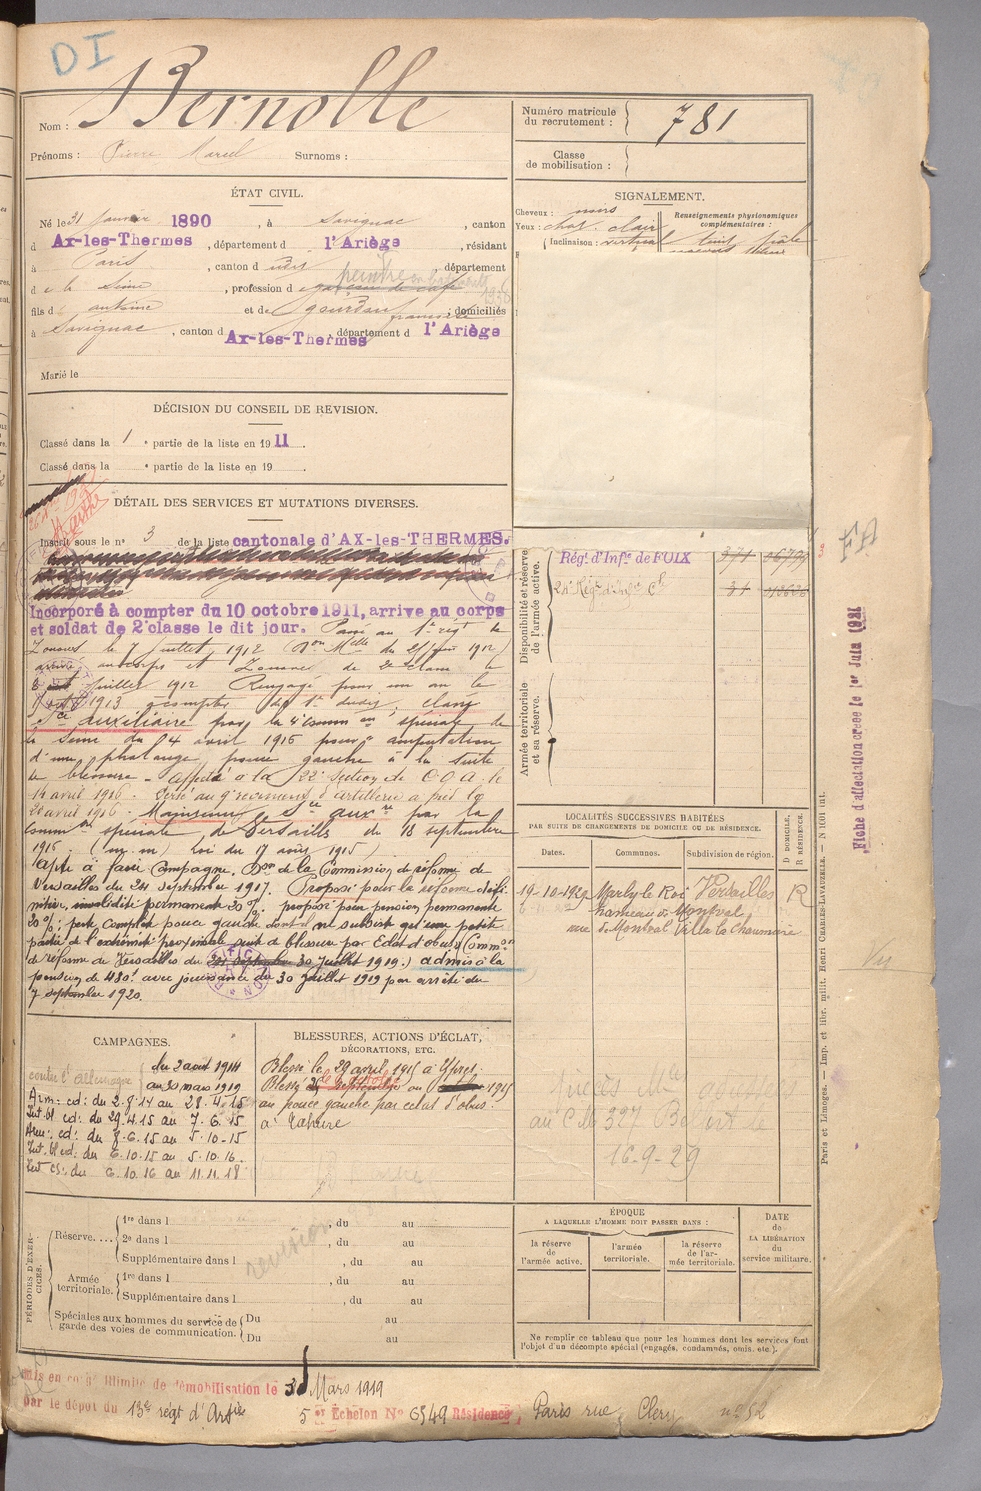 DI
Nom : Bernolle
Prénoms : Pierre Marcel Surnoms :
Numéro matricule du recrutement : 781
Classe de mobilisation :
ÉTAT CIVIL.
Né le 31 Janvier 1890, à Savignac, canton
d Ax-les-Thermes, département d l'Ariège, résidant
à Paris, canton d, département
d e la Seine, profession d garçon de café peintre
fils d antoine et de gourdon françoise, domiciliés
à Savignac, canton d Ax-les-Thermes, département d l'Ariège
Marié le
SIGNALEMENT.
Cheveux : noirs
Yeux : chat. clair
Inclinaison : vertical
Renseignements physionomiques complémentaires :
teint pâle
DÉCISION DU CONSEIL DE REVISION.
Classé dans la 1 e partie de la liste en 1911.
Classé dans la e partie de la liste en 19 .
DÉTAIL DES SERVICES ET MUTATIONS DIVERSES.
Inscrit sous le no 3 de la liste cantonale d'AX-les-THERMES.
Incorporé à compter du 10 octobre 1911, arrive au corps
et soldat de 2e classe le dit jour. Passé au 1er régt de
Zouaves le 7 juillet 1912 (Don Melle du 25 juin 1912)
arrivé au corps et Zouave de 2e classe le
8 juillet 1912 Rengagé pour un an le
1913 à compter du 1er dudit. classé
Sce auxiliaire par la 4e Comm on spéciale de
la Seine du 4 avril 1916 pour amputation
d'une phalange pouce gauche à la suite
de blessure - affecté à la 22e Section de C.O.A. le
14 avril 1916. Versé au 9e régiment d'artillerie à pied le
21 avril 1916. Maintenu Sce auxre par la
Comm on spéciale de Versailles du 18 septembre
1916. (m. m. loi du 17 août 1915)
Apte à faire Campagne. Don de la Commission de réforme de
Versailles du 24 septembre 1917. Proposé pour la réforme défi-
nitive, invalidité permanente 20 %. proposé pour pension permanente
20 %; perte complète pouce gauche dont il ne subsiste qu'une petite
partie de l'extrémité proximale suite de blessure par Eclat d'obus (Comm on
de réforme de Versailles du 30 Juillet 1919.) admis à la
pension de 480f avec jouissance du 30 Juillet 1919 par arrêté du
7 septembre 1920.
Disponibilité et réserve de l'armée active.
Régt d'Infie de FOIX 371 06794
21e Régt d'Infie Cle 31
Armée territoriale et sa réserve.
LOCALITÉS SUCCESSIVES HABITÉES
PAR SUITE DE CHANGEMENTS DE DOMICILE OU DE RÉSIDENCE.
Dates. Communes. Subdivision de région. D. DOMICILE, R. RÉSIDENCE.
19-10-1929 Marly-le-Roi Versailles R
hameau de Montval
rue de Montval Villa la Chaumière
CAMPAGNES.
contre l'allemagne du 2 août 1914
au 30 mars 1919
Arm: cd: du 2.8.14 au 28.4.15
Int. bl cd: du 29.4.15 au 7.6.15
Arm: cd: du 8.6.15 au 5.10.15
Int. bl cd: du 6.10.15 au 5.10.16
Int cs: du 6.10.16 au 11.11.18
BLESSURES, ACTIONS D'ÉCLAT,
DÉCORATIONS, ETC.
Blessé le 29 avril 1915 à Ypres.
Blessé 1915
au pouce gauche par éclat d'obus.
à Tahure
au C.M. 327
16-9-29
revision
PÉRIODES D'EXERCICES.
Réserve.... 1re dans l , du au
2e dans l , du au
Supplémentaire dans l , du au
Armée territoriale. 1re dans l , du au
Supplémentaire dans l , du au
Spéciales aux hommes du service de garde des voies de communication. Du au
Du au
ÉPOQUE
A LAQUELLE L'HOMME DOIT PASSER DANS :
la réserve de l'armée active. l'armée territoriale. la réserve de l'armée territoriale.
DATE de LA LIBÉRATION du service militaire.
Ne remplir ce tableau que pour les hommes dont les services font
l'objet d'un décompte spécial (engagés, condamnés, omis. etc.).
mis en congé illimité de démobilisation le 30 Mars 1919
par le dépôt du 13e régt d'Artie 5 e Echelon No 6549 Résidence Paris rue Clery no 52
Fiche d'affectation créée le 1er Juin 1921
Paris et Limoges. — Imp. et libr. milit. Henri CHARLES-LAVAUZELLE. — N 1001 int.